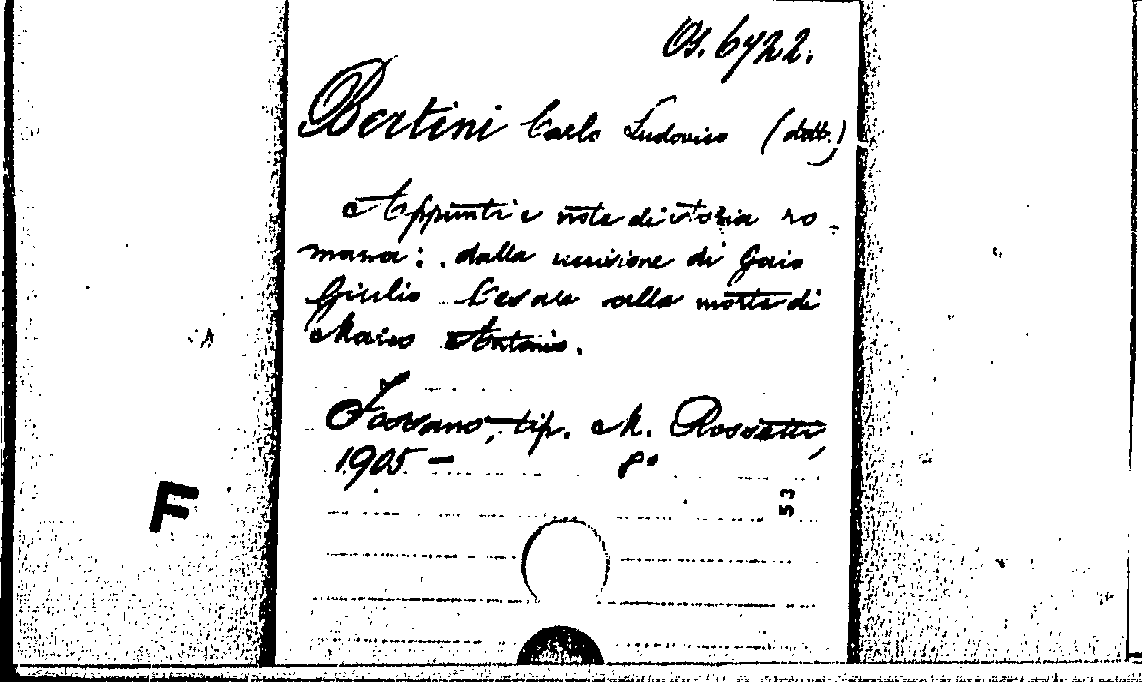 Os. 6422.
Bertini Carlo Ludovico (dott.)
Appunti e note di storia ro-
mana: dalla uccisione di Gaio
Giulio Cesare alla morte di
Marco Antonio.
Fossano, tip. M. Rossetti,
1905 - 8°
53
F